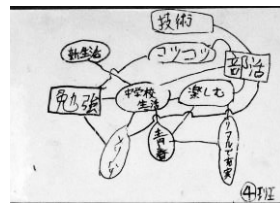 技術
新生活
コツコツ
部活
勉強
中学校
生活
楽しむ
メリハリ
青春
リアルで充実
④班